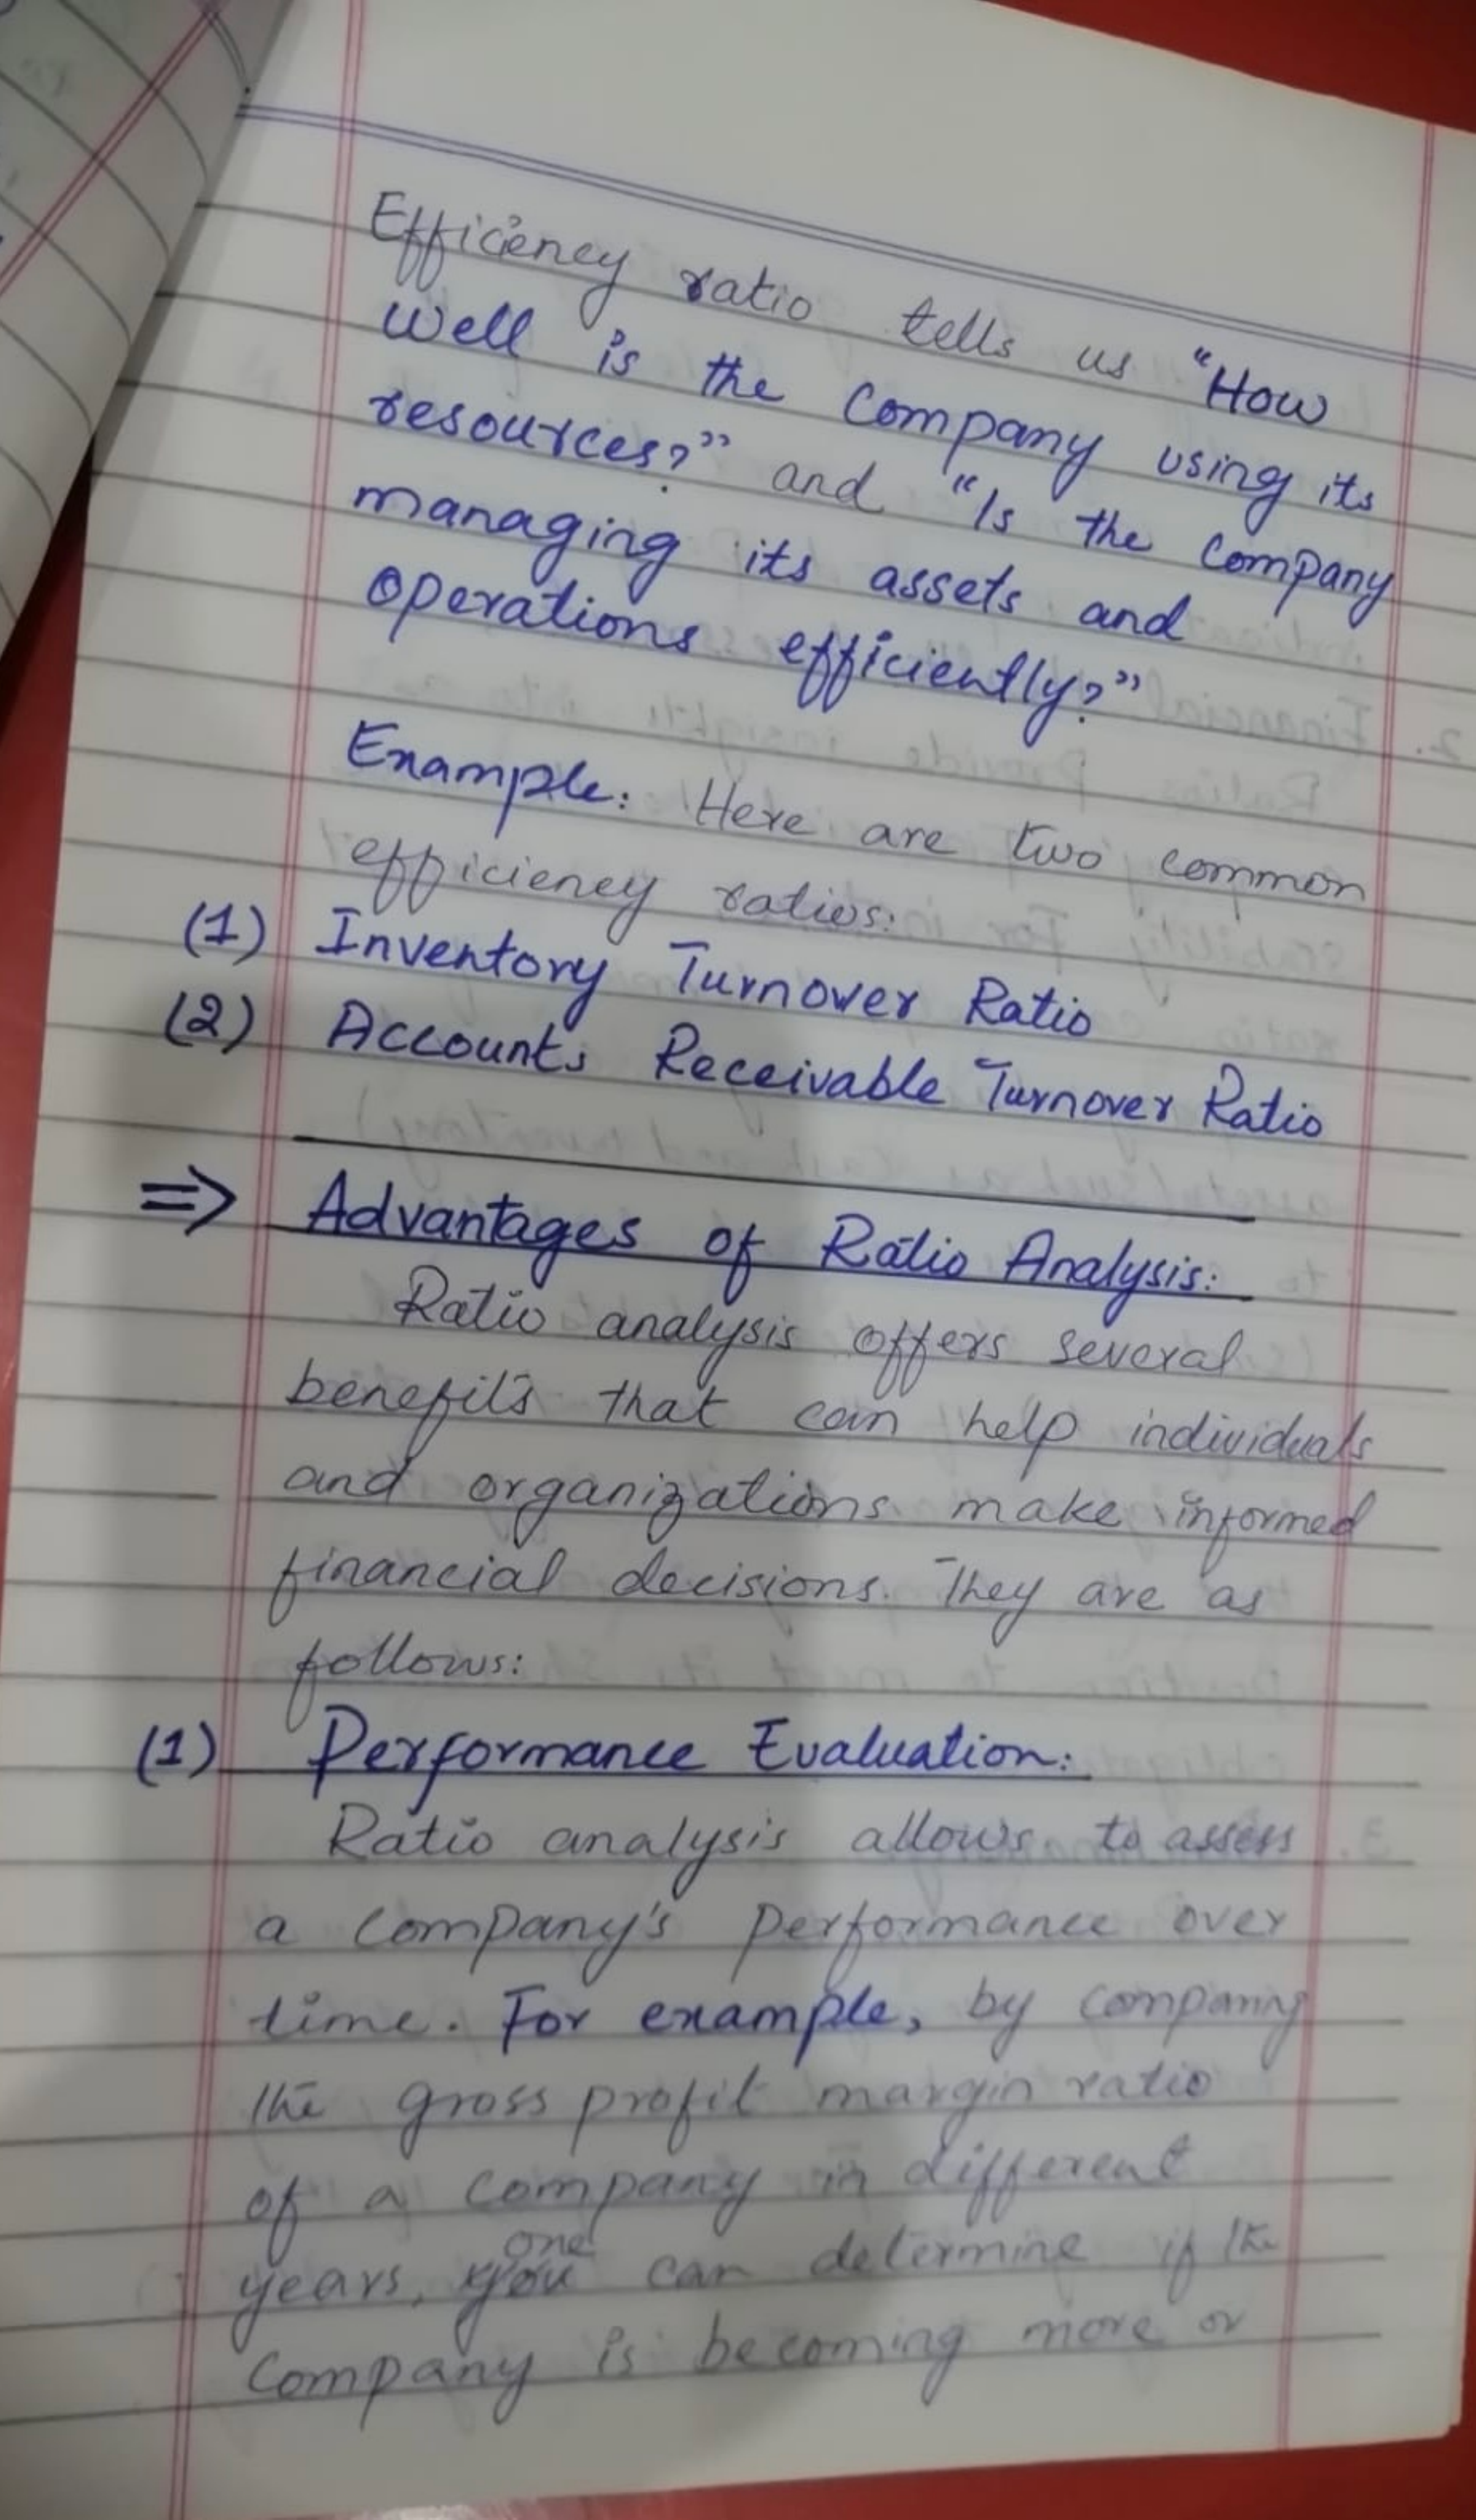 Efficiency ratio tells us "How
well is the Company using its
resources?" and "Is the Company
managing its assets and
operations efficiently?"
Example: Here are two common
efficiency ratios:
(1) Inventory Turnover Ratio
(2) Accounts Receivable Turnover Ratio
=> Advantages of Ratio Analysis:
Ratio analysis offers several
benefits that can help individuals
and organizations make informed
financial decisions. They are as
follows:
(1) Performance Evaluation:
Ratio analysis allows to assess
a Company's performance over
time. For example, by comparing
the gross profit margin ratio
of a Company in different
one
years, you can determine if the
Company is becoming more or